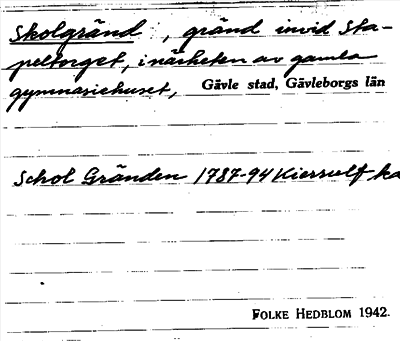 Skolgränd, gränd invid Sta-
peltorget, i närheten av gamla
gymnasiehuset, Gävle stad, Gävleborgs län
Schol Gränden 1787-94 Kierrulf ka
FOLKE HEDBLOM 1942.